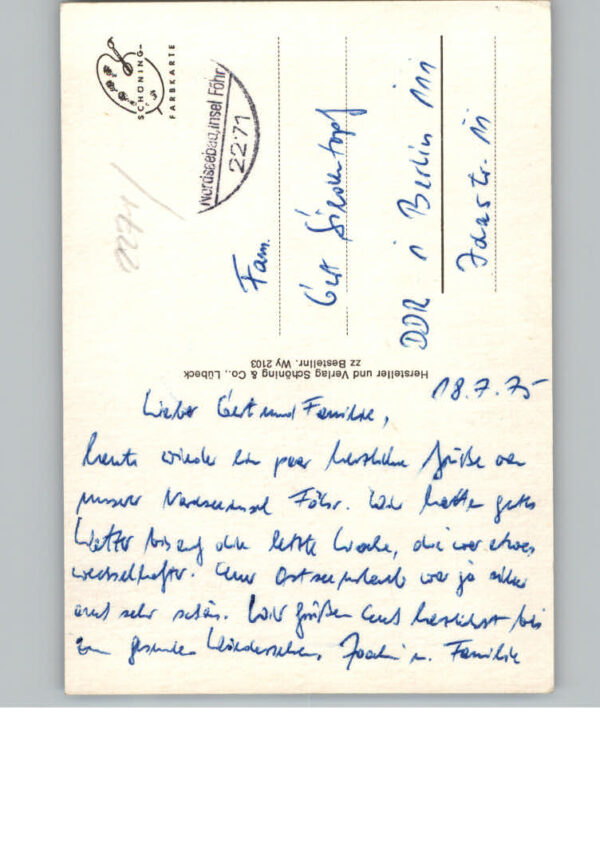 SCHÖNING-
FARBKARTE
Nordseebad, Insel Föhr
2271
Fam.
Gert
DDR 1 Berlin 111
111
Hersteller und Verlag Schöning & Co., Lübeck
zz Bestellnr. Wy 2103
18.7.75
Lieber Gert und Familie,
heute wieder ein paar herzliche Grüße von
unserer Nordseeinsel Föhr. Wir hatten gutes
Wetter bis auf die letzte Woche, die war etwas
wechselhafter. Euer Ostseeurlaub war ja sicher
auch sehr schön. Wir grüßen Euch herzlichst bis
zum gesunden Wiedersehen, Joachim u. Familie